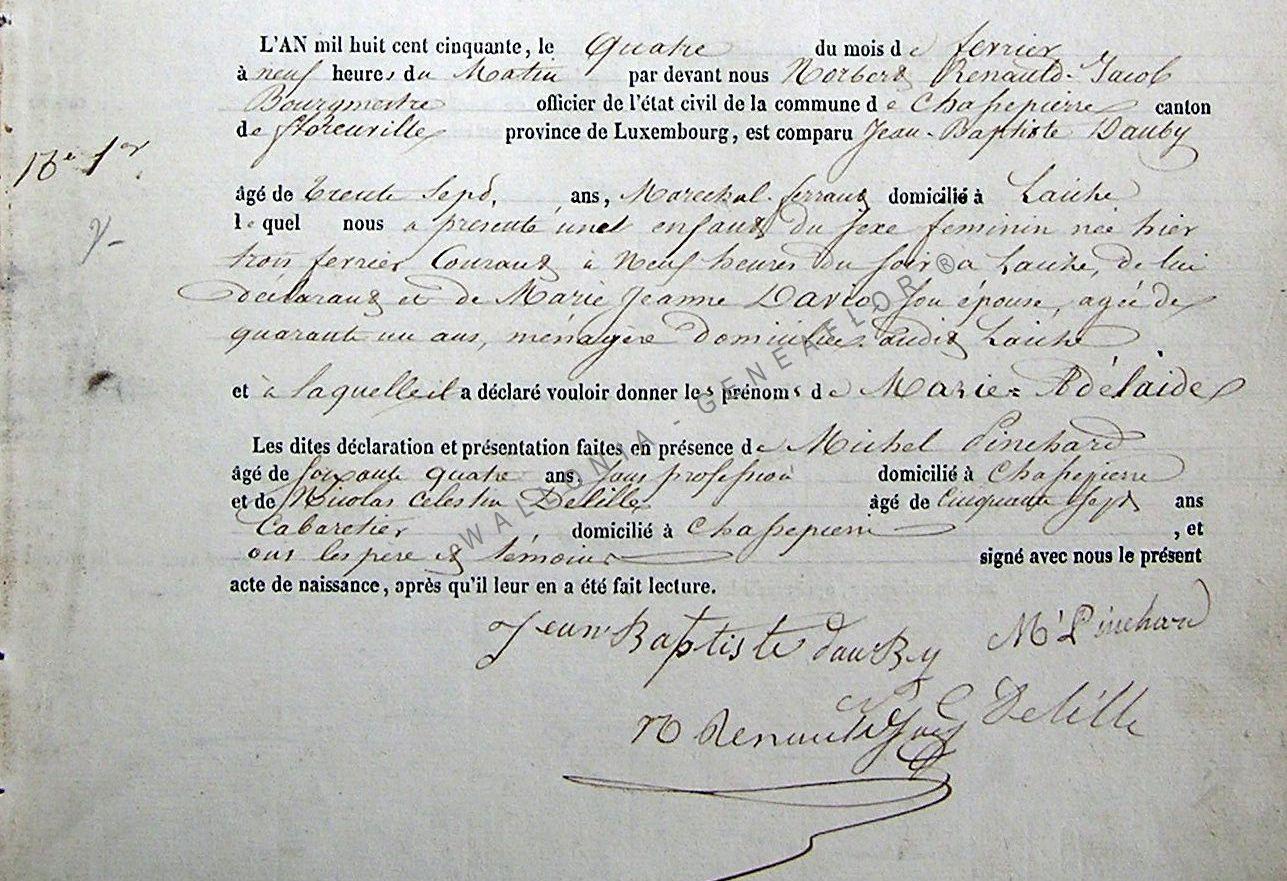 L'AN mil huit cent cinquante, le Quatre du mois de fevrier
à neuf heures du Matin par devant nous Norbert Renauld-Jacob
Bourgmestre officier de l'état civil de la commune de Chassepierre canton
de florenville province de Luxembourg, est comparu Jean-Baptiste Dauby
âgé de trente sept ans, Marechal ferrant domicilié à Laiche
lequel nous a présenté un enfant du sexe feminin née hier
trois fevrier Courant à Neuf heures du soir à Laiche, de lui
déclarant et de Marie Jeanne son épouse, agée de
quarante un ans, ménagère domiciliée audit Laiche
et à laquelle il a déclaré vouloir donner les prénoms de Marie=Adélaide
Les dites déclaration et présentation faites en présence de Michel Pinchard
âgé de soixante quatre ans, sans profession domicilié à Chassepierre
et de Nicolas Celestin Delille âgé de Cinquante sept ans
Cabaretier domicilié à Chassepierre, et
ont les pere et témoins signé avec nous le présent
acte de naissance, après qu'il leur en a été fait lecture.
Jean Baptiste dauBy M Pinchard
N C Delille
N Renauld Jacob
WALLONIA - GENEAFLOR ®